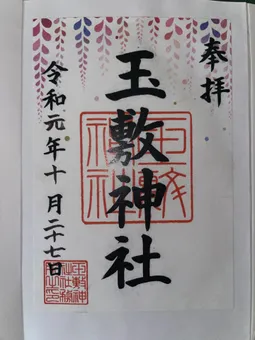 奉拝
玉敷神社
令和元年十月二十七日
玉敷神社